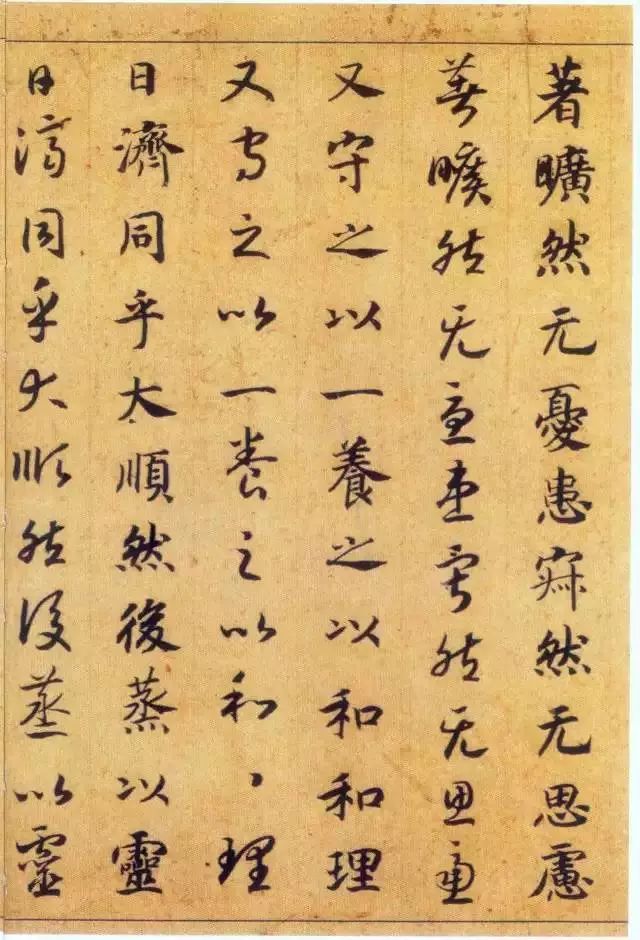 著曠然无憂患寂然无思慮
著曠然无憂患寂然无思慮
又守之以一養之以和和理
又守之以一養之以和、理
日濟同乎大順然後蒸以靈
日濟同乎大順然後蒸以靈